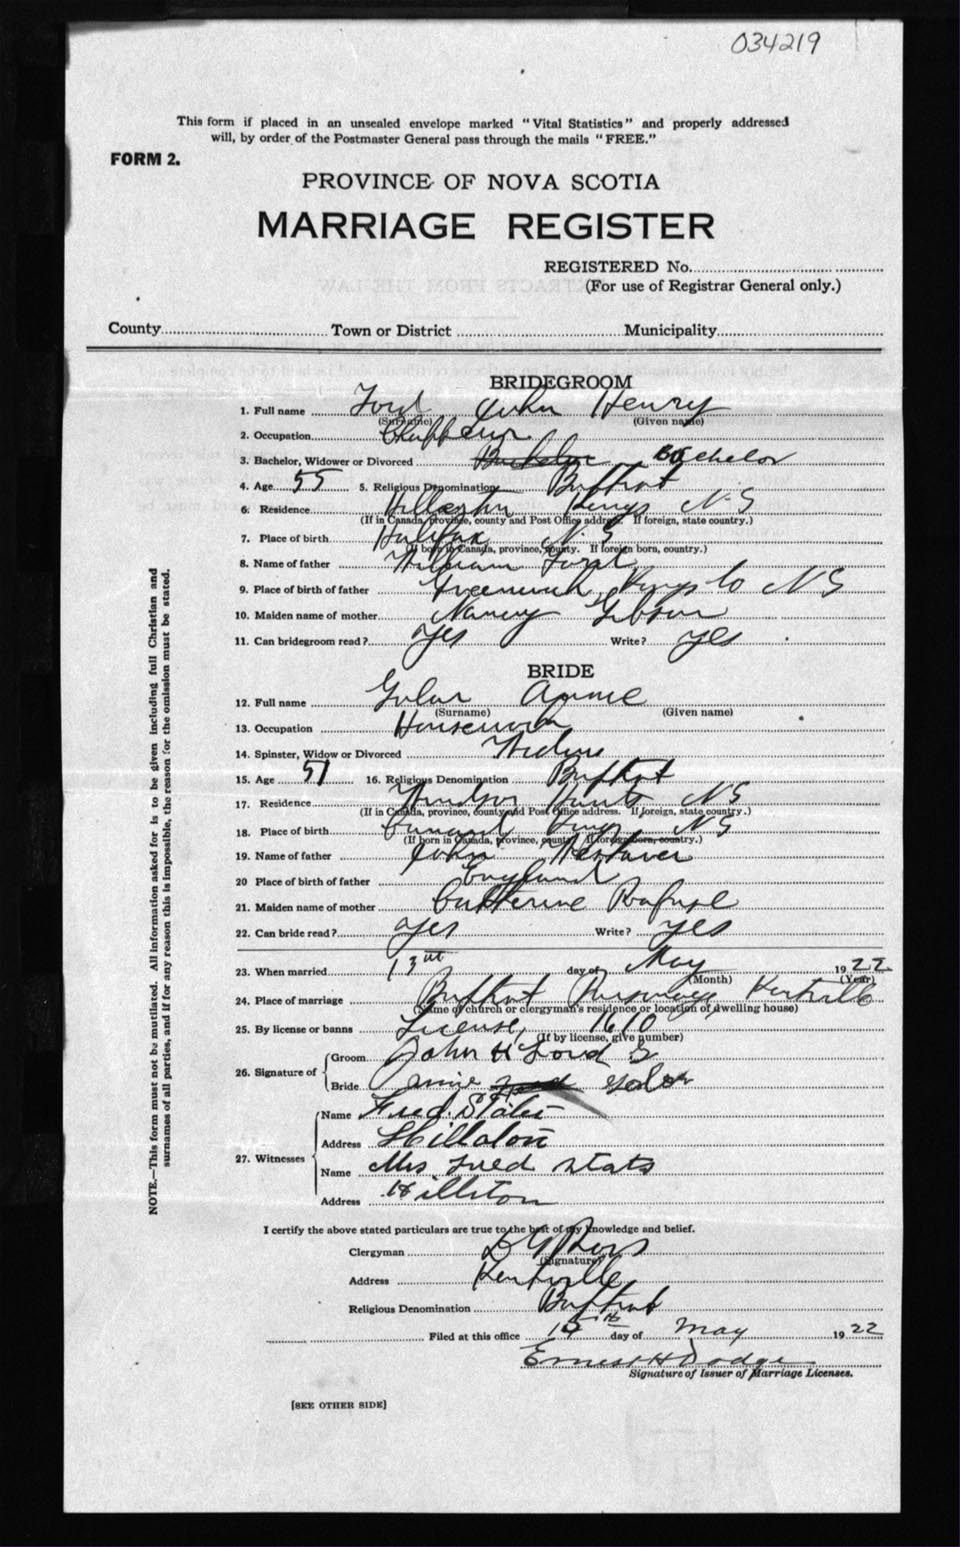 034219
This form if placed in an unsealed envelope marked "Vital Statistics" and properly addressed
will, by order of the Postmaster General pass through the mails "FREE."
FORM 2.
PROVINCE OF NOVA SCOTIA
MARRIAGE REGISTER
REGISTERED No.
(For use of Registrar General only.)
County Town or District Municipality
BRIDEGROOM
1. Full name Ford John Henry
(Surname) (Given name)
2. Occupation
3. Bachelor, Widower or Divorced Bachelor
4. Age 55 5. Religious Denomination Baptist
6. Residence Kings N.S
(If in Canada, province, county and Post Office address. If foreign, state country.)
7. Place of birth Halifax N.S
(If born in Canada, province, county. If foreign born, country.)
8. Name of father William Ford
9. Place of birth of father Greenwich Kings Co N S
10. Maiden name of mother Nancy Gibson
11. Can bridegroom read? Yes Write? Yes
BRIDE
12. Full name Annie
(Surname) (Given name)
13. Occupation Housework
14. Spinster, Widow or Divorced Widow
15. Age 51 16. Religious Denomination Baptist
17. Residence Windsor Hants N S
(If in Canada, province, county and Post Office address. If foreign, state country.)
18. Place of birth Kings N S
(If born in Canada, province, county. If foreign born, country.)
19. Name of father John
20 Place of birth of father England
21. Maiden name of mother Catherine
22. Can bride read? Yes Write? Yes
23. When married 13th day of May 1922
(Month) (Year)
24. Place of marriage Baptist Parsonage Kentville
(Name of church or clergyman's residence or location of dwelling house)
25. By license or banns License, 1610
(If by license, give number)
26. Signature of
Groom John H Ford
Bride Annie
27. Witnesses
Name Fred
Address
Name Mrs Fred
Address
I certify the above stated particulars are true to the best of my knowledge and belief.
Clergyman
(Signature)
Address Kentville
Religious Denomination Baptist
Filed at this office day of May 1922
Ernest H Dodge
Signature of Issuer of Marriage Licenses.
[SEE OTHER SIDE]
NOTE.—This form must not be mutilated. All information asked for is to be given including full Christian and
surnames of all parties, and if for any reason this is impossible, the reason for the omission must be stated.